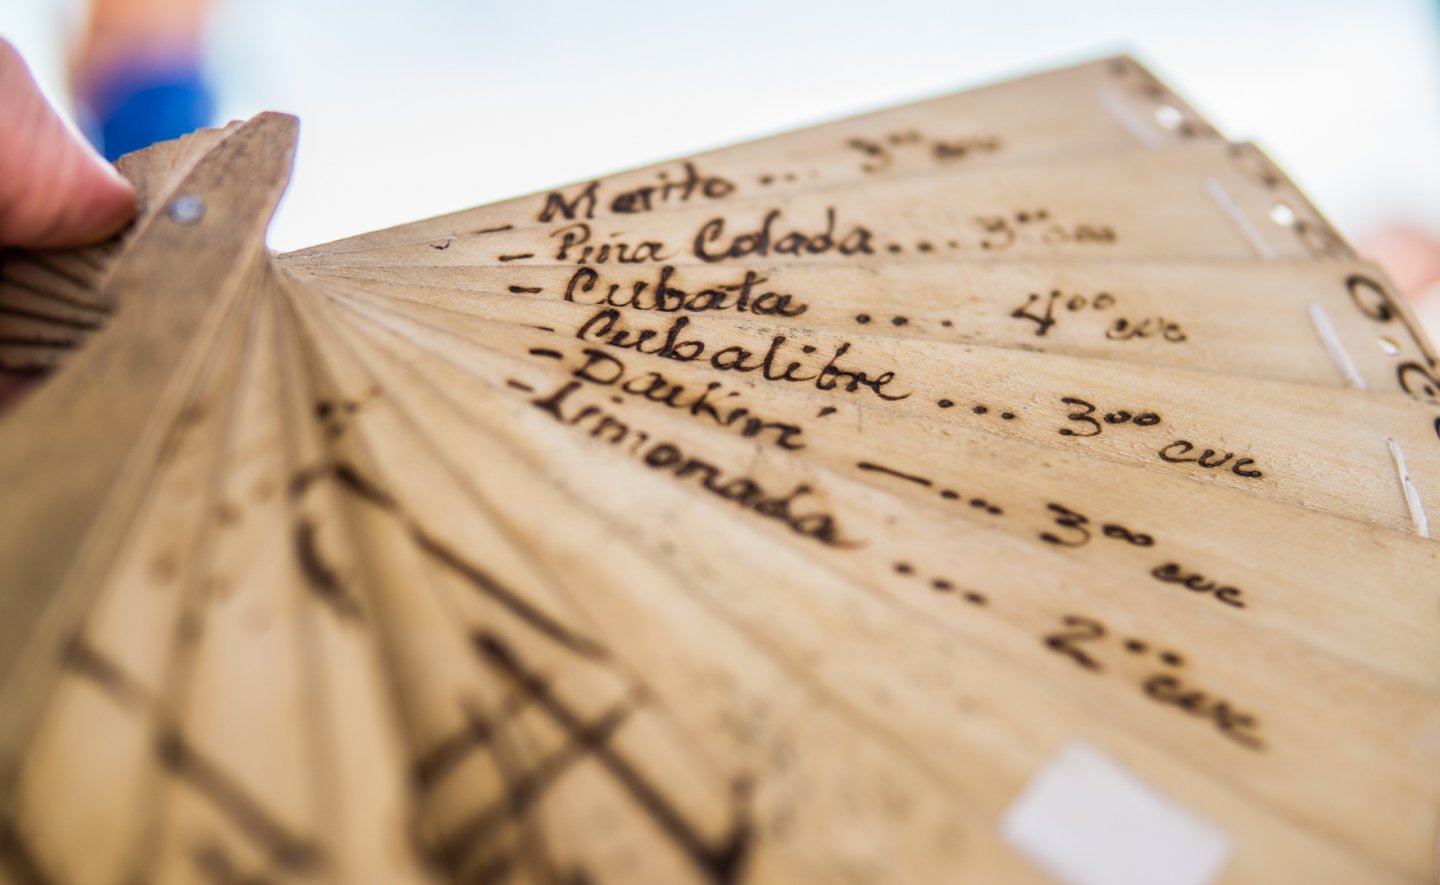 - Mojito ... 3⁰⁰ cuc
- Piña Colada.... 3⁰⁰ cuc
- Cubata .... 4⁰⁰ cuc
- Cubalibre ... 3⁰⁰ cuc
- Daikirí —.... 3⁰⁰ cuc
- Limonada .... 2⁰⁰ cuc